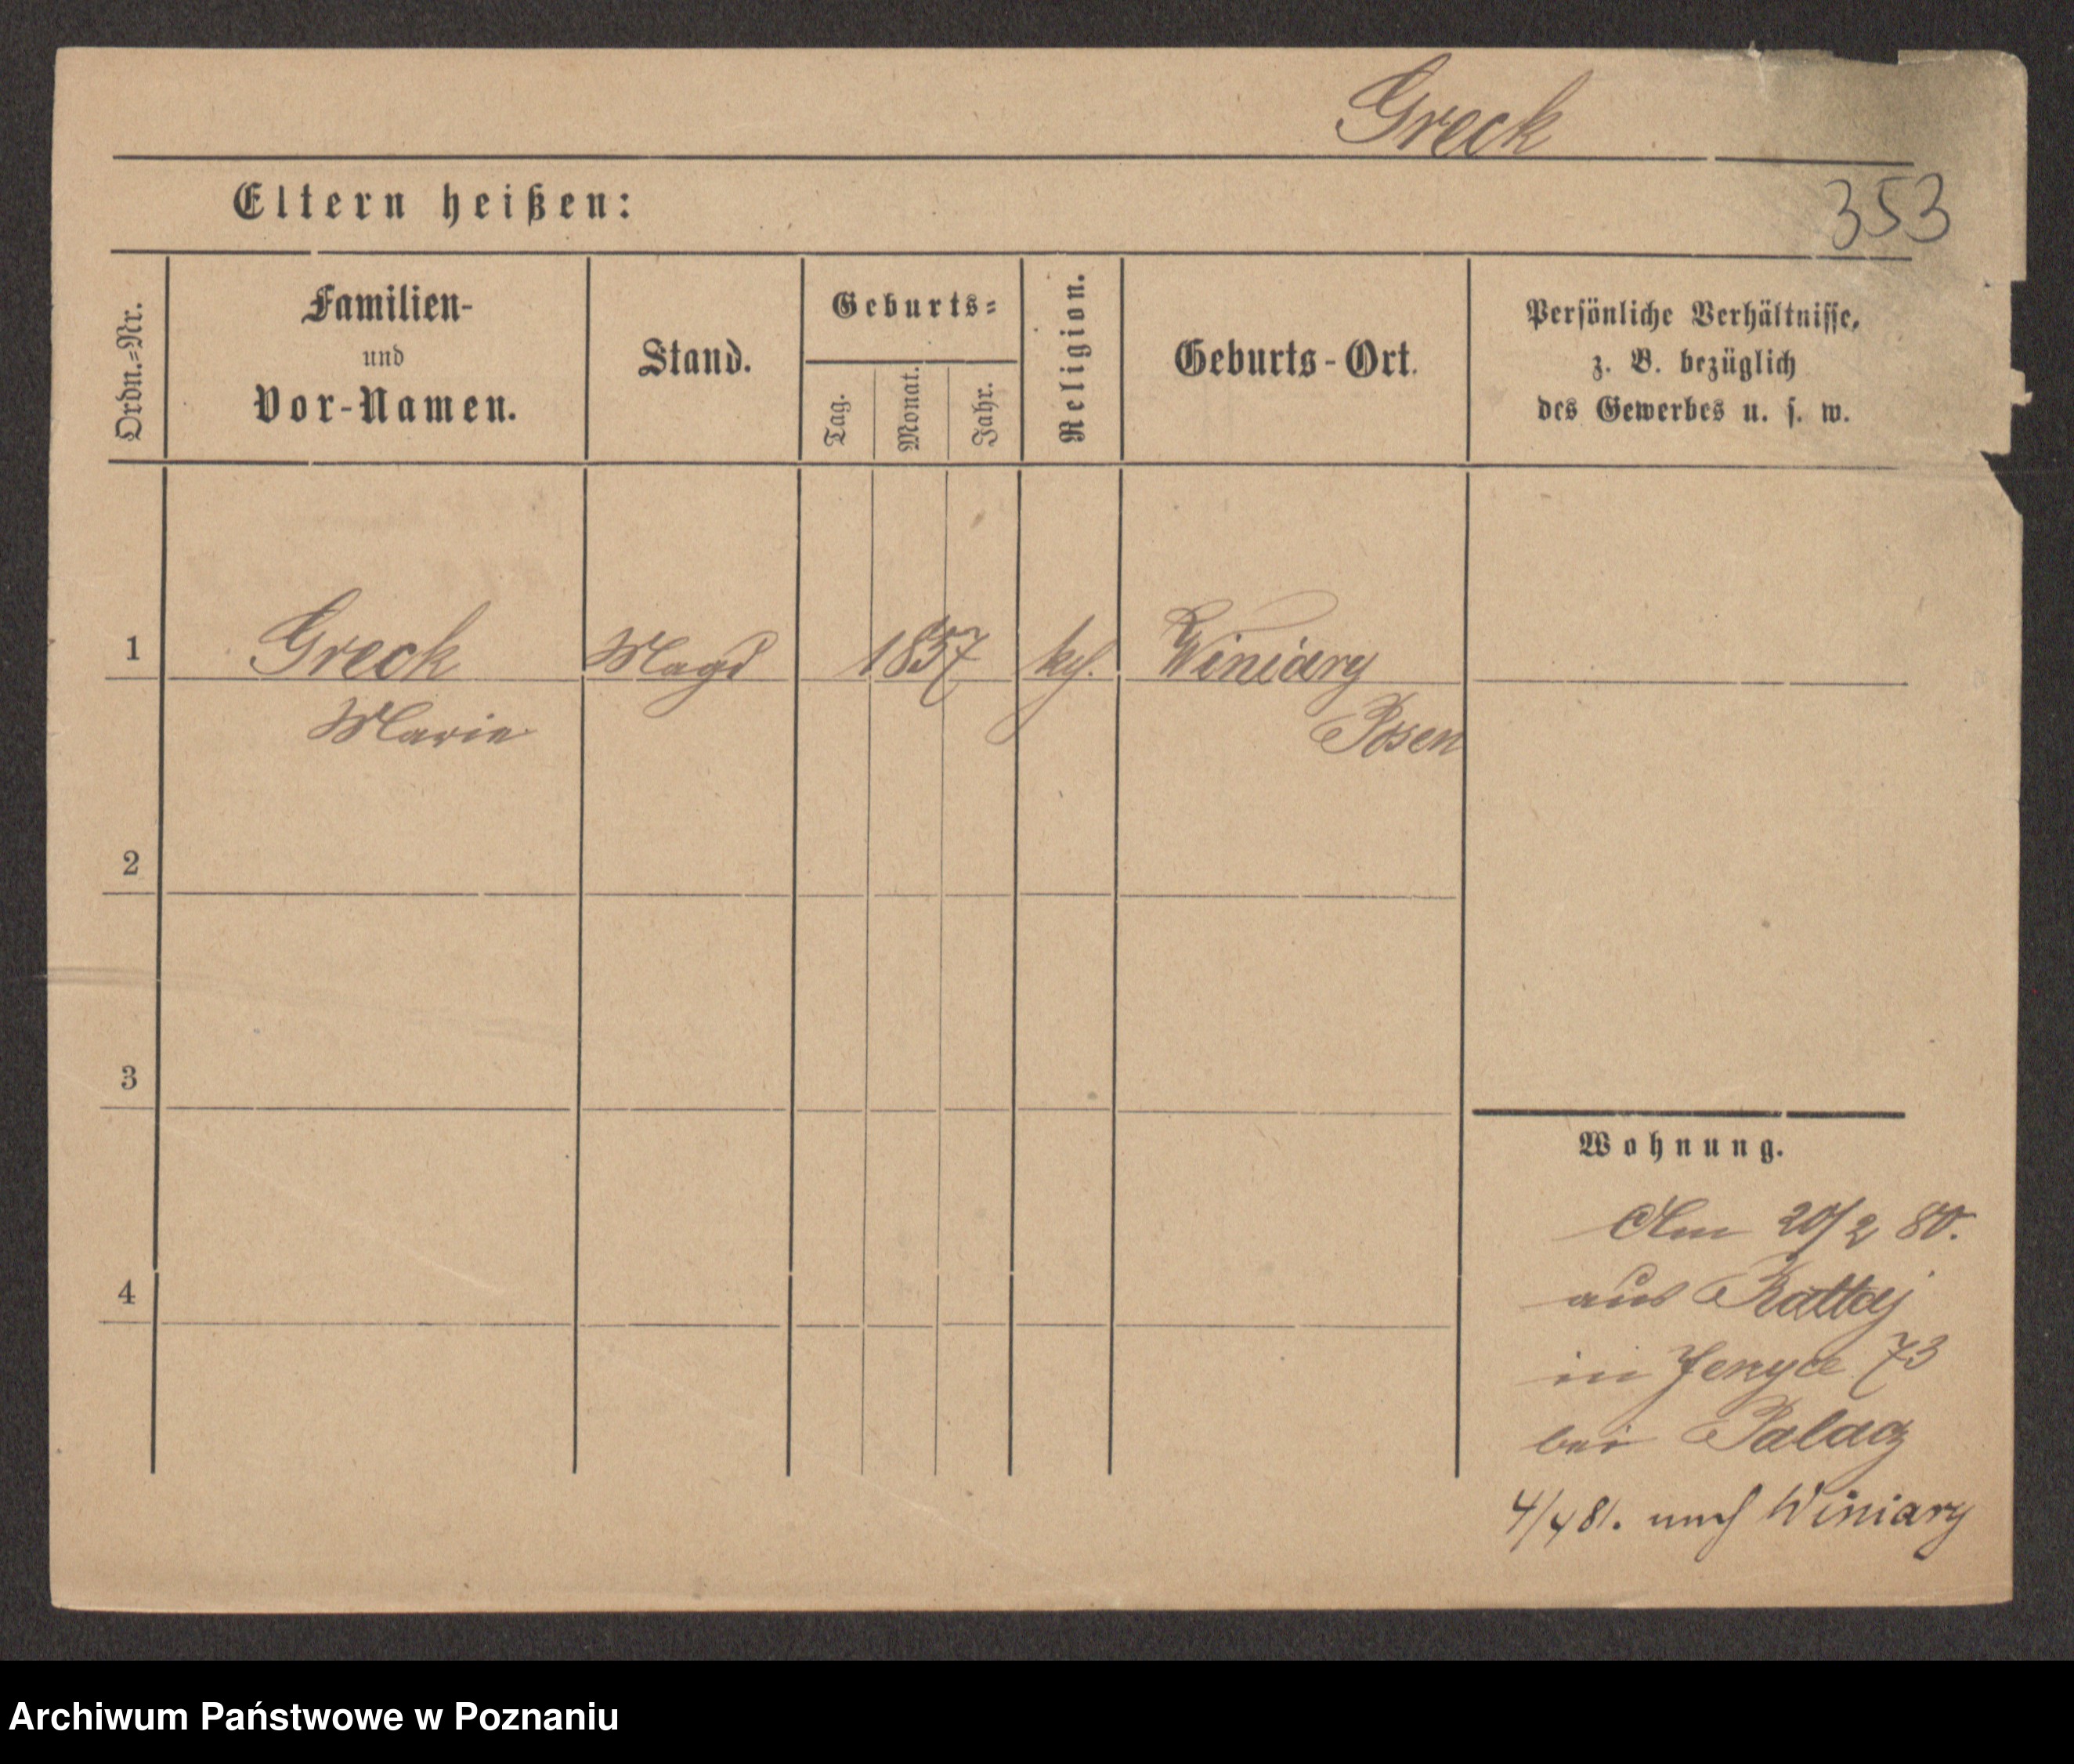 Greck
Eltern heißen:
353
Ordn.=Nr.
Familien-
und
Vor-Namen.
Stand.
Geburts=
Tag.
Monat.
Jahr.
Religion.
Geburts-Ort.
Persönliche Verhältnisse,
z. B. bezüglich
des Gewerbes u. s. w.
1 Greck Magd 1857 kth. Winiary
Marie Posen
2
3
4
Wohnung.
Am 20/2 80.
aus Rattay
in Jerzyce 73
bei Palacz
4/4 81. nach Winiary
Archiwum Państwowe w Poznaniu